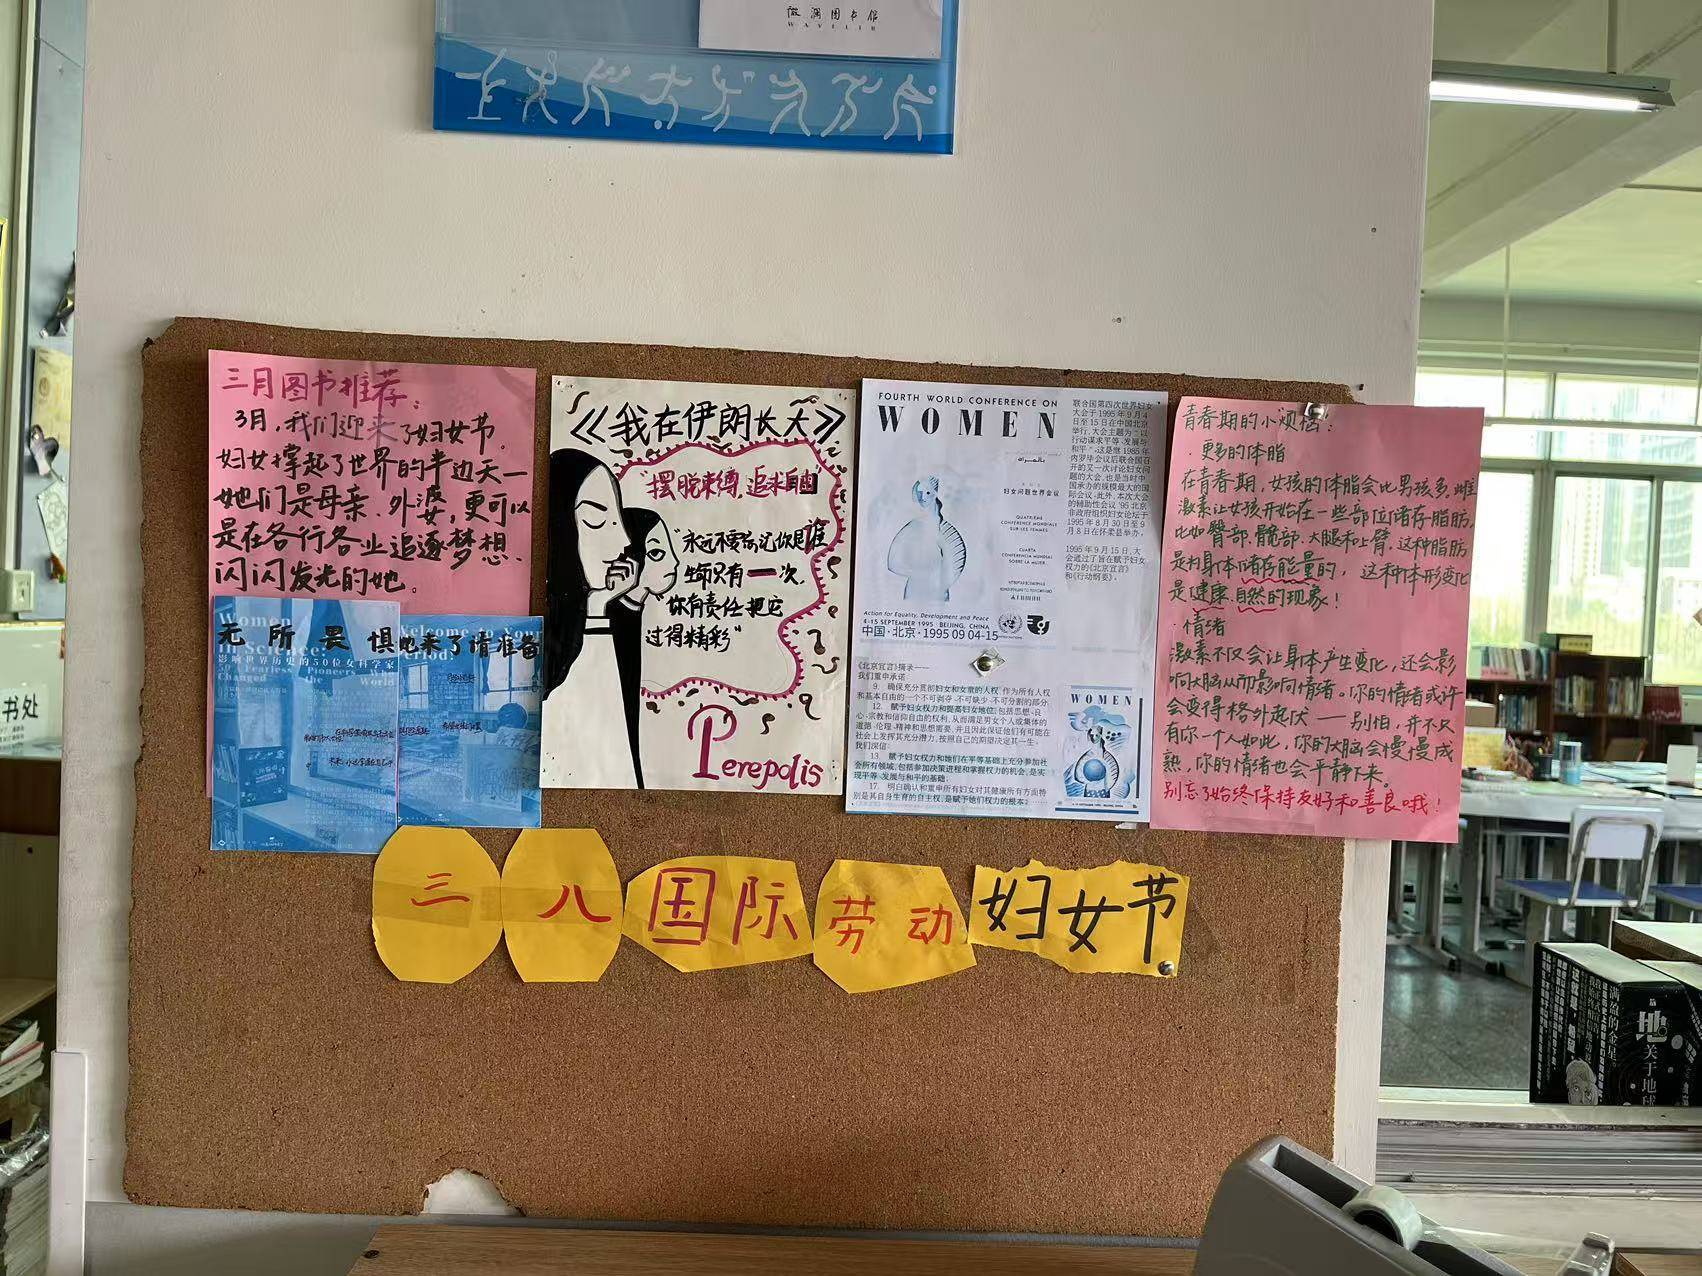 微澜图书馆
三月图书推荐：
3月，我们迎来了妇女节。
妇女撑起了世界的半边天一
她们是母亲、外婆，更可以
是在各行各业追逐梦想、
闪闪发光的她。
Women
in Science:
无所畏惧
影响世界历史的50位女科学家
50 Fearless Pioneers
Changed the World
Welcome to Your
Period!
她来了请准备
《我在伊朗长大》
“摆脱束缚，追求自由”
“永远不要忘记你是谁
生命只有一次，
“你有责任把它
过得精彩”
Perepolis
FOURTH WORLD CONFERENCE ON
WOMEN
妇女问题世界会议
QUATRIÈME
CONFÉRENCE MONDIALE
SUR LES FEMMES
CUARTA
CONFERENCIA MUNDIAL
SOBRE LA MUJER
Action for Equality, Development and Peace
4-15 SEPTEMBER 1995 BEIJING, CHINA
中国·北京·1995 09 04-15
联合国第四次世界妇女
大会于1995年9月4
日至15日在中国北京
举行，大会主题为：“以
行动谋求平等、发展与
和平”。这是继1985年
内罗毕会议后联合国召
开的又一次讨论妇女问
题的大会，也是当时中
国承办的规模最大的国
际会议。此外，本次大会
的辅助性会议“95北京
非政府组织妇女论坛于
1995年8月30日至9
月8日在怀柔县举办。
1995年9月15日，大
会通过了旨在赋予妇女
权力的《北京宣言》
和《行动纲要》。
《北京宣言》摘录——
我们重申承诺
9. 确保充分贯彻妇女和女童的人权，作为所有人权
和基本自由的一个不可剥夺、不可缺少、不可分割的部分。
12. 赋予妇女权力和提高妇女地位，包括思想、良
心、宗教和信仰自由的权利，从而满足男女个人或集体的
道德、伦理、精神和思想需要，并且因此保证他们有可能在
社会上发挥其充分潜力，按照自己的期望决定其一生。
我们深信：
13. 赋予妇女权力和她们在平等基础上充分参加社
会所有领域，包括参加决策进程和掌握权力的机会，是实
现平等、发展与和平的基础；
17. 明白确认和重申所有妇女对其健康所有方面特
别是其自身生育的自主权，是赋予她们权力的根本；
WOMEN
青春期的小烦恼：
·更多的体脂
在青春期，女孩的体脂会比男孩多，雌
激素让女孩开始在一些部位储存脂肪，
比如臀部、髋部、大腿和上臂，这种脂肪
是为身体储存能量的，这种体形变化
是健康、自然的现象！
·情绪
激素不仅会让身体产生变化，还会影
响大脑从而影响情绪。你的情绪或许
会变得格外起伏——别怕，并不只
有你一个人如此，你的大脑会慢慢成
熟，你的情绪也会平静下来。
别忘了始终保持友好和善良哦！
三八国际劳动妇女节
书处
满盈的金星
关于地球